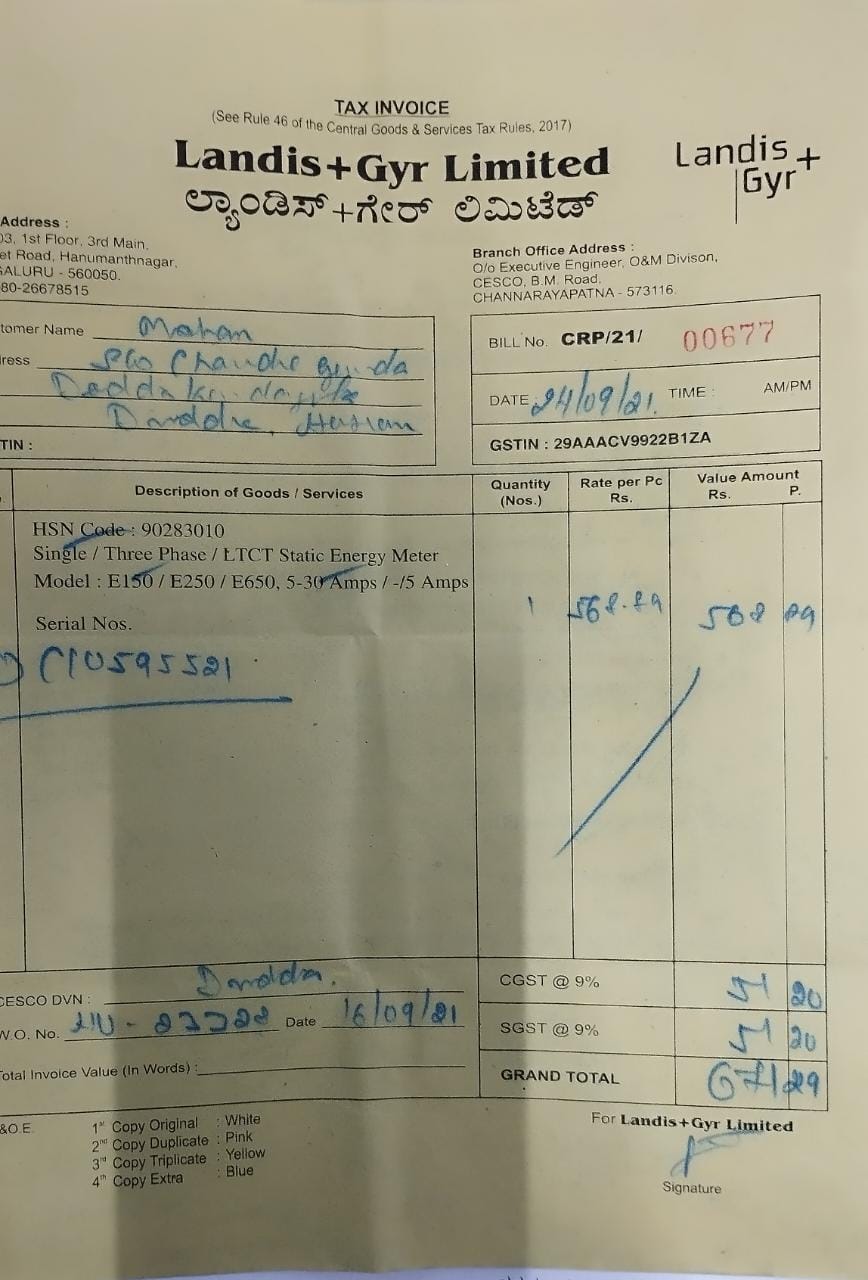 TAX INVOICE
(See Rule 46 of the Central Goods & Services Tax Rules, 2017)
Landis+Gyr Limited
ಲ್ಯಾಂಡಿಸ್+ಗೇರ್ ಲಿಮಿಟೆಡ್
Landis+
Gyr
Address :
03, 1st Floor, 3rd Main,
et Road, Hanumanthnagar,
GALURU - 560050.
80-26678515
Branch Office Address :
O/o Executive Engineer, O&M Divison,
CESCO, B.M. Road,
CHANNARAYAPATNA - 573116.
tomer Name Mohan
ress S/o
TIN :
BILL No. CRP/21/ 00677
DATE : 24/09/21. TIME : AM/PM
GSTIN : 29AAACV9922B1ZA
Description of Goods / Services
Quantity
(Nos.)
Rate per Pc
Rs.
Value Amount
Rs. P.
HSN Code : 90283010
Single / Three Phase / LTCT Static Energy Meter
Model : E150 / E250 / E650, 5-30 Amps / -/5 Amps
1 568.89 568 89
Serial Nos.
C10595521
CESCO DVN :
W.O. No. Date 16/09/21
Total Invoice Value (In Words) :
CGST @ 9% 51 20
SGST @ 9% 51 20
GRAND TOTAL 671 29
&O.E.
1st Copy Original : White
2nd Copy Duplicate : Pink
3rd Copy Triplicate : Yellow
4th Copy Extra : Blue
For Landis+Gyr Limited
Signature